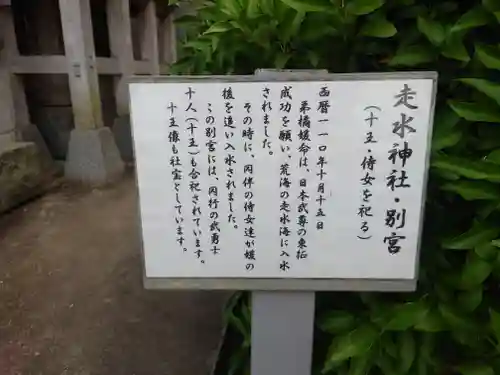 走水神社・別宮
（十五・侍女を祀る）
西暦一一〇年十月十五日
弟橘媛命は、日本武尊の東征
成功を願い、荒海の走水海に入水
されました。
その時に、同伴の侍女達が媛の
後を追い入水されました。
この別宮には、同行の武勇士
十人（十五）も合祀されています。
十五像も社宝としています。